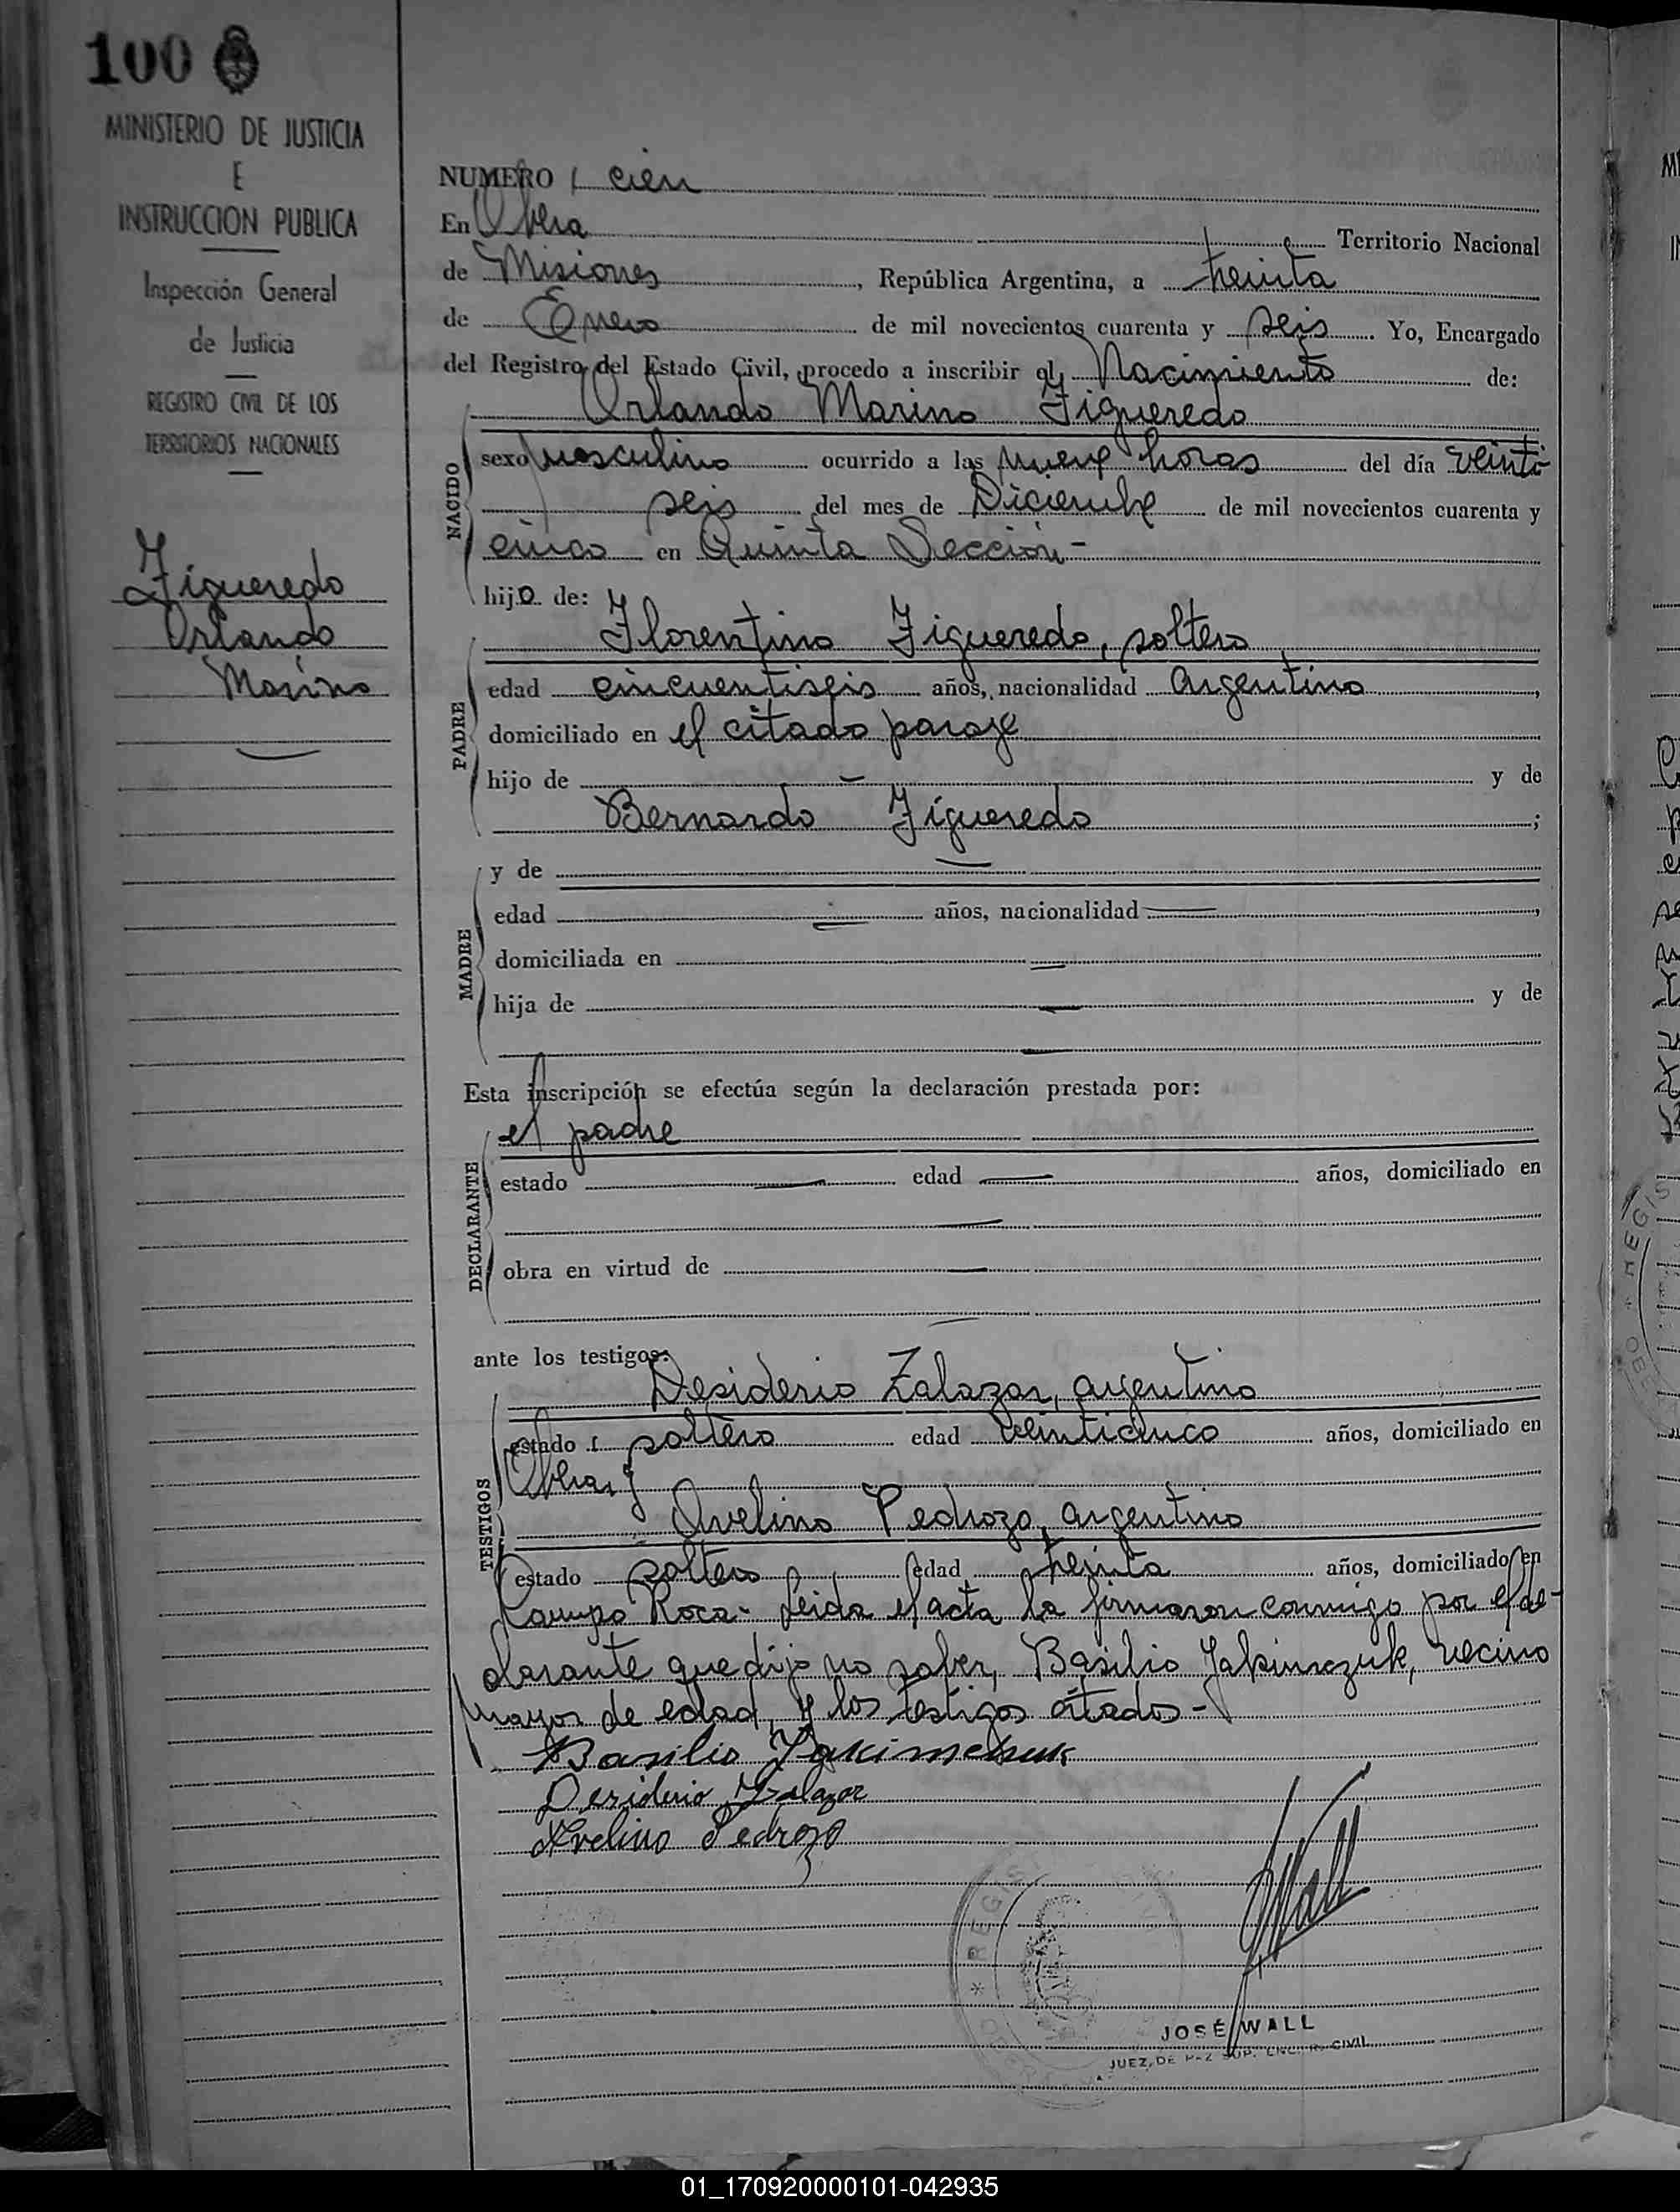 100
MINISTERIO DE JUSTICIA
E
INSTRUCCION PUBLICA
Inspección General
de Justicia
REGISTRO CIVIL DE LOS
TERRITORIOS NACIONALES
Figueredo
Orlando
Marino
NUMERO cien
En Obera Territorio Nacional
de Misiones, República Argentina, a treinta
de Enero de mil novecientos cuarenta y seis. Yo, Encargado
del Registro del Estado Civil, procedo a inscribir el Nacimiento de:
Orlando Marino Figueredo
NACIDO
sexo masculino ocurrido a las nueve horas del día veinti
seis del mes de Diciembre de mil novecientos cuarenta y
cinco en Quinta Sección-
hijo de:
PADRE
Florentino Figueredo, soltero
edad cincuentiseis años, nacionalidad Argentino,
domiciliado en el citado paraje
hijo de — y de
Bernardo Figueredo;
MADRE
y de —
edad — años, nacionalidad —,
domiciliada en —
hija de — y de
—
Esta inscripción se efectúa según la declaración prestada por:
DECLARANTE
el padre
estado — edad — años, domiciliado en
—
obra en virtud de —
—
ante los testigos:
TESTIGOS
Desiderio Zalazar, argentino
estado soltero edad veinticinco años, domiciliado en
Obera y
Avelino Pedrozo, argentino
estado soltero edad treinta años, domiciliado en
Campo Roca- Leida el acta la firmaron conmigo por el de-
clarante que dijo no saber, Basilio Jakimczuk, vecino
mayor de edad, y los testigos citados-
Basilio Jakimchuk
Desiderio Zalazar
Avelino Pedrozo
JWall
* REGIS
JOSÉ WALL
JUEZ DE PAZ SUP. ENC. R. CIVIL
01_170920000101-042935